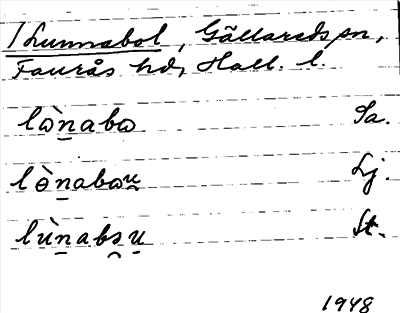 / Lunnabol, Gällareds sn,
Faurås hd, Hall. l.
lὼn̲abω Sa.
lòn̲abωu̲ Lj.
lùn̲abs̯u̲ St.
1948